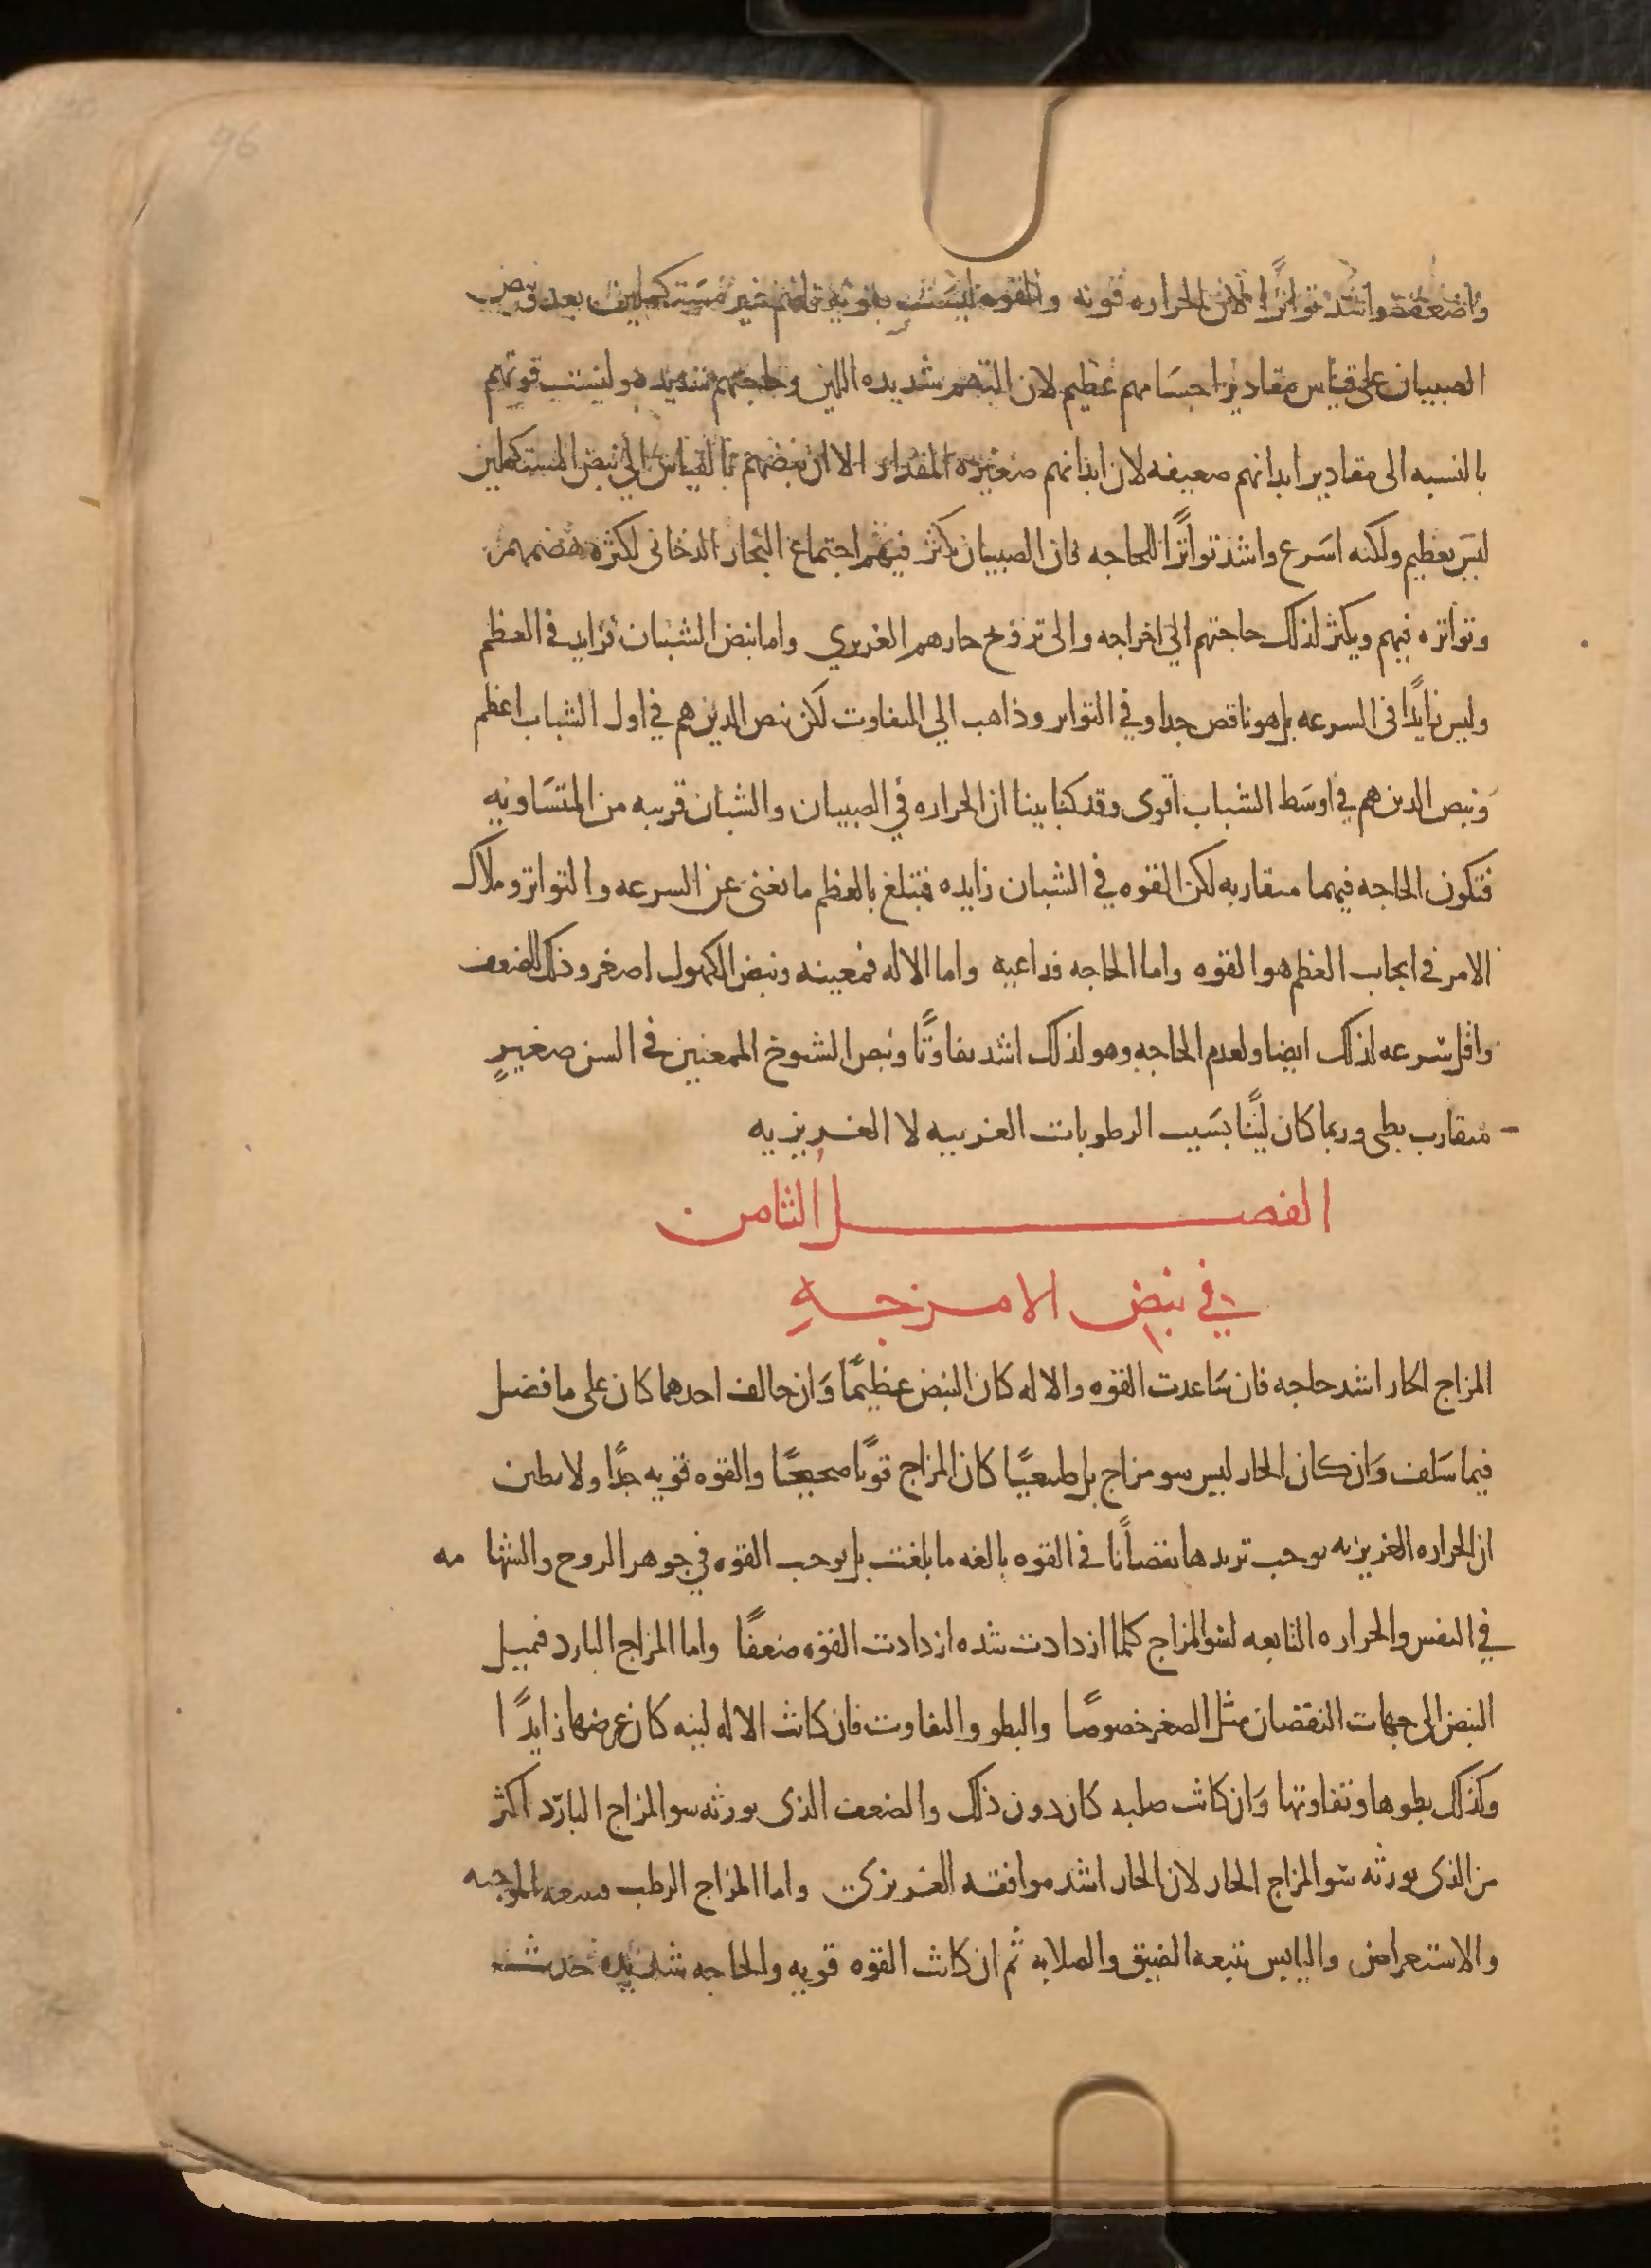 76
واضعف واشد تواترا لان الحراره قويه والقوه ليست بقويه فانهم غير مستكملين بعد ونبض
الصبيان على قياس مقادير اجسامهم عظيم لان التهم شديده اللين وحاجتهم شديده وليست قوتهم
بالنسبه الى مقادير ابدانهم ضعيفه لان ابدانهم صغيره المقدار الا ان نبضهم بالقياس الى نبض المستكملين
ليس بعظيم ولكنه اسرع واشد تواترًا للحاجه فان الصبيان يكثر فيهم اجتماع البخار الدخانى لكثره هضمهم
وتواتره فيهم ويكثر لذلك حاجتهم الى اخراجه والى ترويح حارهم الغريزي واما نبض الشبان فزايد في العظم
وليس زايدًا فى السرعه بل هو ناقص جدا وفي التواتر وذاهب الي التفاوت لكن نبض الذين هم في اول الشباب اعظم
ونبض الذين هم في اوسط الشباب اقوى وقد كنا بينا ان الحراره في الصبيان والشبان قريبه من المتساويه
فتكون الحاجه فيهما متقاربه لكن القوه في الشبان زايده فتبلغ بالعظم ما يغنى عن السرعه والتواتر وملاك
الامر في ايجاب العظم هو القوه واما الحاجه فداعيه واما الاله فمعينه ونبض الكهول اصغر وذلك للضعف
واقل سرعه لذلك ايضا ولعدم الحاجه وهو لذلك اشد تفاوتًا ونبض الشيوخ الممعنين في السن صغير
متفاوت بطى وربما كان لينًا بسبب الرطوبات الغريبه لا الغريزيه
الفصل الثامن
في نبض الامزجه
المزاج الحار اشد حاجه فان ساعدت القوه والاله كان النبض عظيمًا وان خالف احدهما كان على ما فصل
فيما سلف وان كان الحار ليس سو مزاج بل طبيعيًا كان المزاج قويًا صحيحًا والقوه قويه جدًا ولا تظنن
ان الحراره الغريزيه يوجب تزيدها نقصانًا فى القوه بالغه ما بلغت بل يوجب القوه في جوهر الروح والشهامه
في النفس والحراره التابعه لسو المزاج كلما ازدادت شده ازدادت القوه ضعفًا واما المزاج البارد فيميل
النبض الى جهات النقصان مثل الصغر خصوصًا والبطو والتفاوت فان كانت الاله لينه كان عرضها زايدًا
وكذلك بطوها وتفاوتها وان كانت صلبه كان دون ذلك والضعف الذى يورثه سو المزاج البارد اكثر
من الذى يورثه سو المزاج الحار لان الحار اشد موافقه الغريزى واما المزاج الرطب فتتبعه الموجيه
والاستعراض واليابس يتبعه الضيق والصلابه ثم ان كانت القوه قويه والحاجه شديده حدث